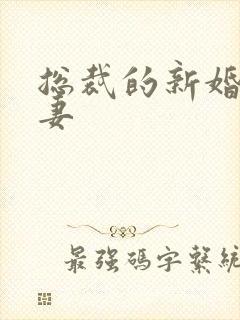 总裁的新婚
妻
最强码字繫統